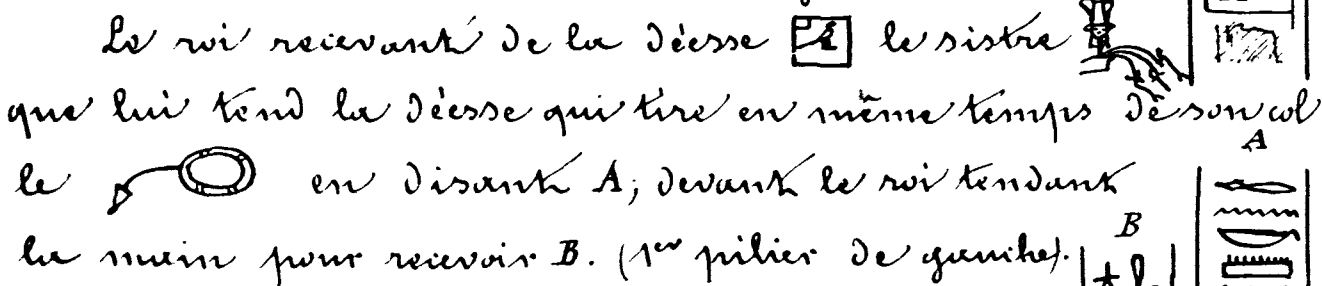 Le roi recevant de la Déesse le sistre
que lui tend la Déesse qui tire en même temps de son col
A
le en disant A; devant le roi tendant
B
la main pour recevoir B. (1er pilier de gauche).